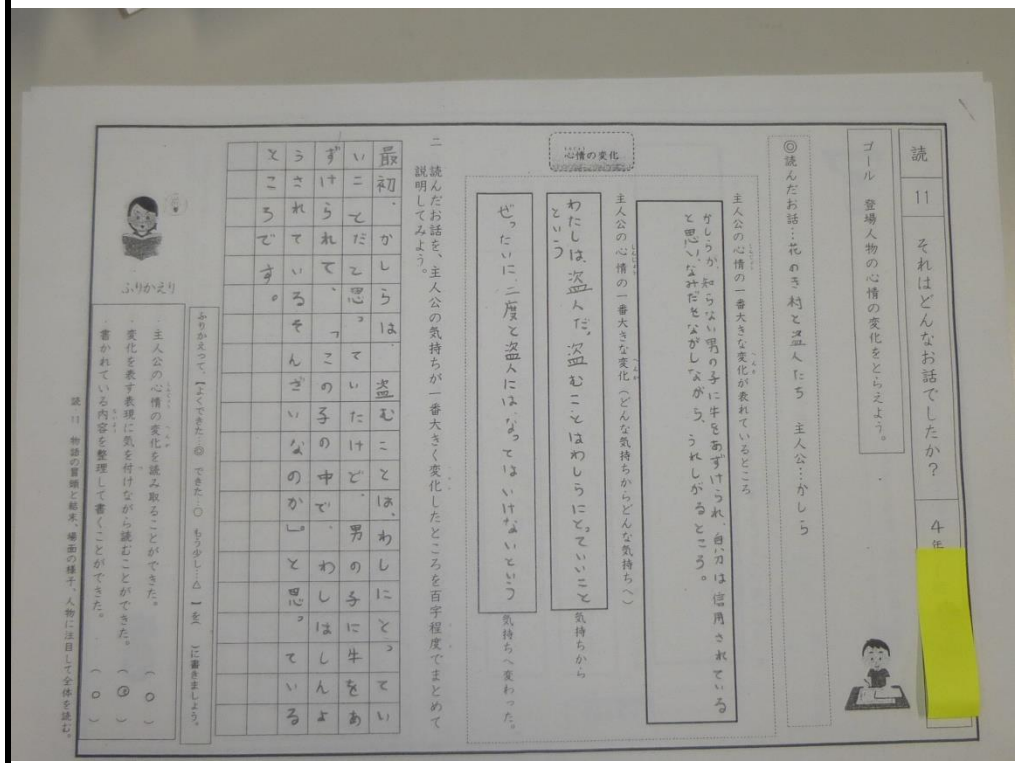 読 11 それはどんなお話でしたか？ 4年
ゴール 登場人物の心情の変化をとらえよう。
◎読んだお話…花のき村と盗人たち 主人公…かしら
主人公の心情の一番大きな変化が表れているところ
かしらが、知らない男の子に牛をあずけられ、自分は信用されている
と思い、なみだをながしながら、うれしがるところ。
主人公の心情の一番大きな変化（どんな気持ちからどんな気持ちへ）
わたしは、盗人だ。盗むことはわしらにとっていいこと
という
気持ちから
ぜったいに、二度と盗人にはなってはいけないという
気持ちへ変わった。
心情の変化
二 読んだお話を、主人公の気持ちが一番大きく変化したところを百字程度でまとめて
説明してみよう。
最初、かしらは、盗むことは、わしにとってい
いことだと思っていたけど、男の子に牛をあ
ずけられて、「この子の中で、わしはしんよ
うされているそんざいなのか」と思っている
ところです。
ふりかえって、【よくできた…◎ できた…○ もう少し…△ 】を（ ）に書きましょう。
ふりかえり
・主人公の心情の変化を読み取ることができた。 （ ○ ）
・変化を表す表現に気を付けながら読むことができた。 （ ◎ ）
・書かれている内容を整理して書くことができた。 （ ○ ）
読 11 物語の冒頭と結末、場面の様子、人物に注目して全体を読む。